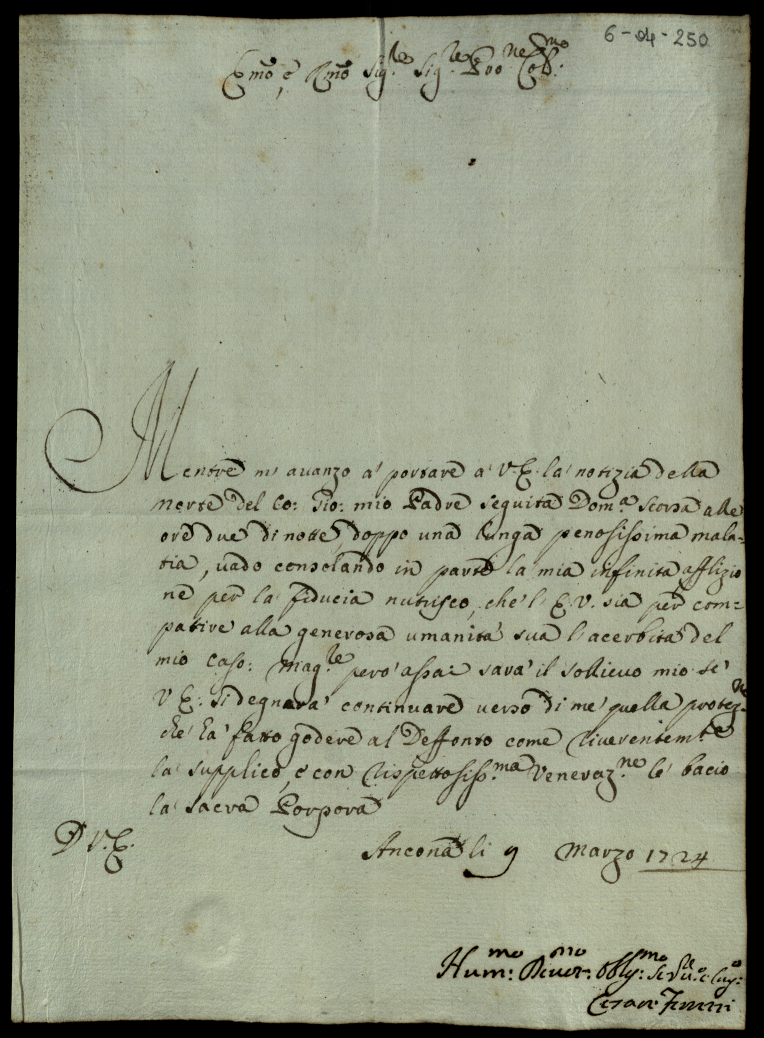 6-04-250
Em̃o, e Rm̃o Sig.re Sig.re Pro͠ne Col.mo
Mentre m'auanzo a' portare a' V. E. la notizia della
morte del Co: Gio: mio Padre seguita Dom.a scorsa alle
ore due di notte, doppo una lunga penosissima mala-
tia, uado consolando in parte la mia infinita afflizio
ne per la fiducia nutrisco, che l' E. V. sia per com-
patire alla generosa umanita' sua l'acerbita' del
mio caso: Mag.re pero' assai sara' il sollieuo mio se'
V. E. si degnara' continuare uerso di me' quella protez.ne
che ha' fatto godere al Deffonto come riuerentem.te
la supplico, e con rispettosiss.ma Veneraz.ne le' bacio
la sacra Porpora
D V. E.
Ancona li 9 Marzo 1724
Hum.mo Deuot.mo Obblig.mo
Cesare